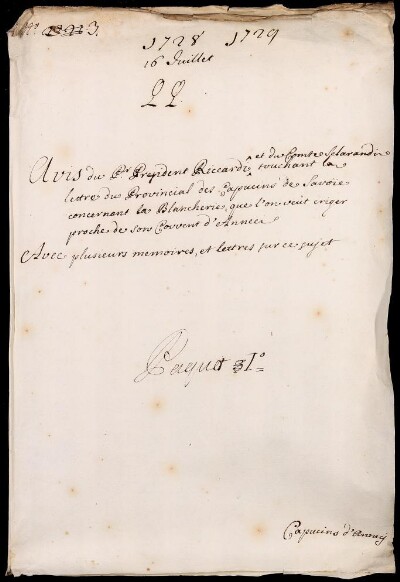 3.
1728 1729
16 Juillet
Avis du Pr. President Riccardi et du Comte Sclarandi touchant la
lettre du Provincial des Capucins de Savoie
concernant la Blancherie, que l'on veut eriger
proche de son Couvent d'Annecy
Avec plusieurs memoires, et lettres sur ce sujet
Paquet
Capucins d'Anecy